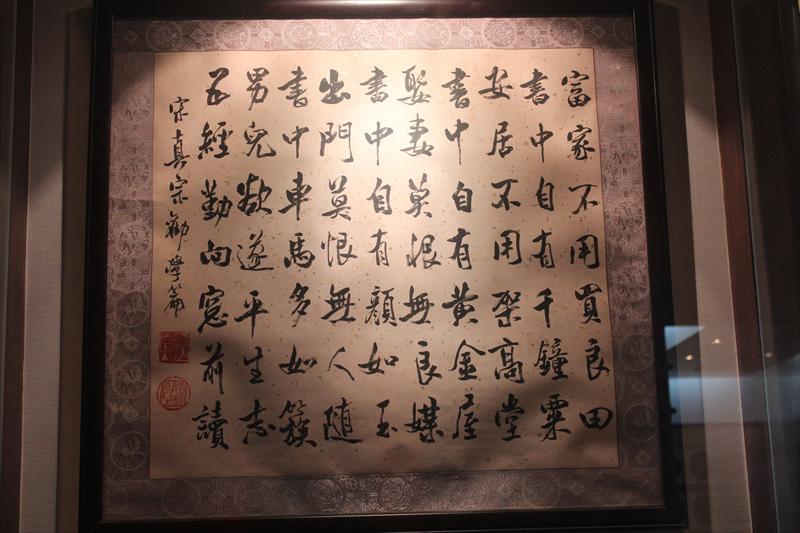 富家不用買良田
書中自有千鐘粟
安居不用架高堂
書中自有黄金屋
娶妻莫恨無良媒
書中自有顔如玉
出門莫恨無人随
書中車馬多如簇
男兒欲遂平生志
五經勤向窓前讀
宋真宗勸學篇